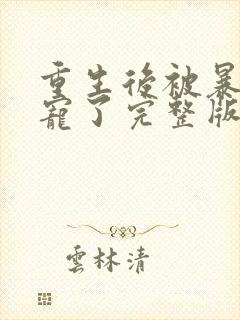 重生後被暴
寵了完整版
雲林清